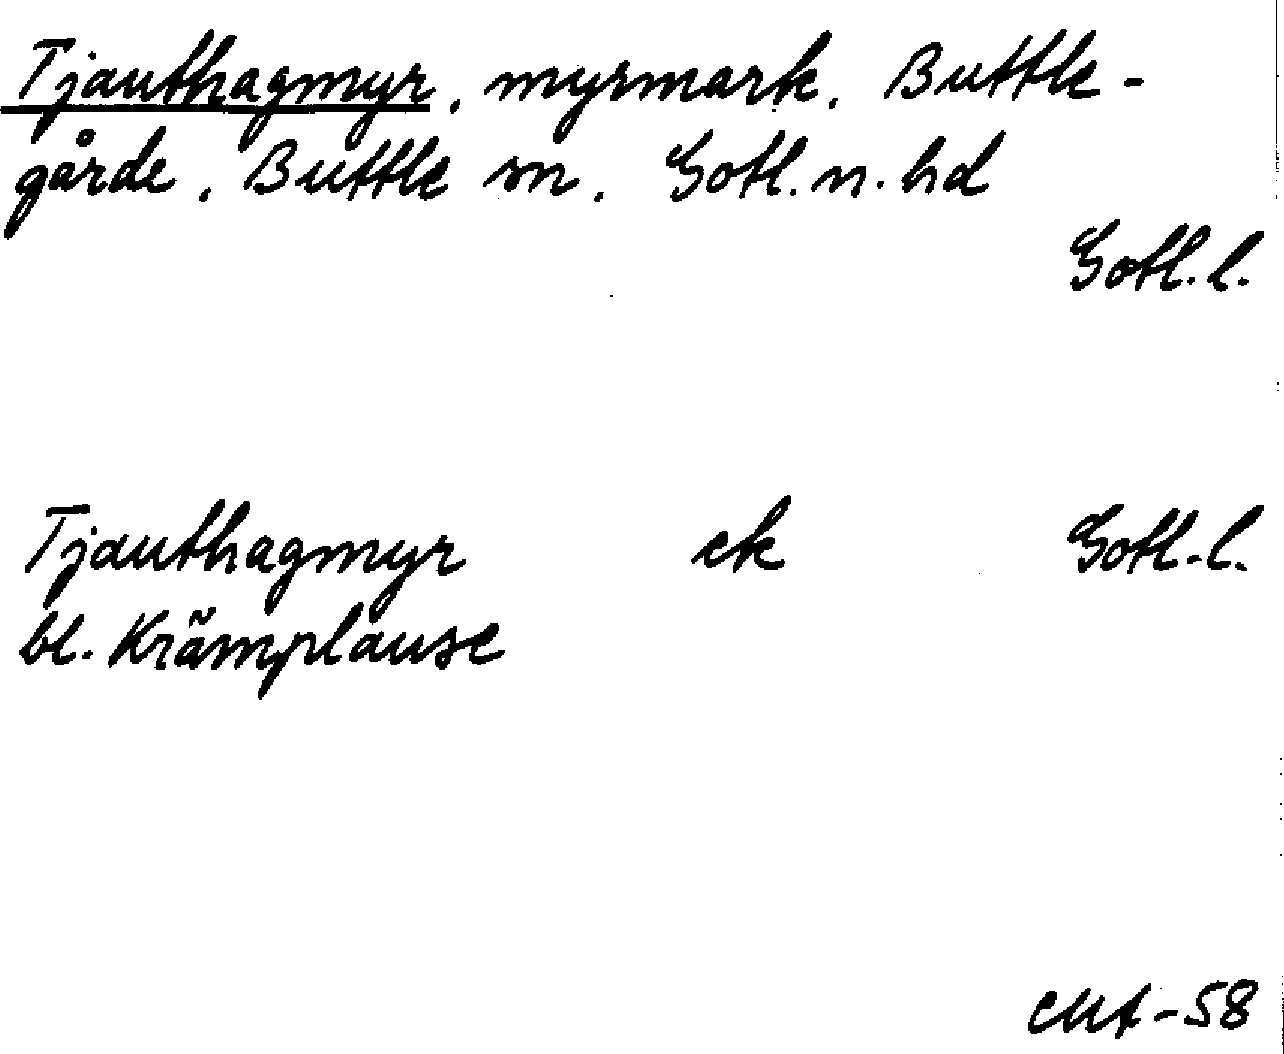 Tjauthagmyr, myrmark, Buttle-
gårde, Buttle sn, Gotl. n. hd
Gotl. l.
Tjauthagmyr ek Gotl. l.
bl. Krämplause
-58